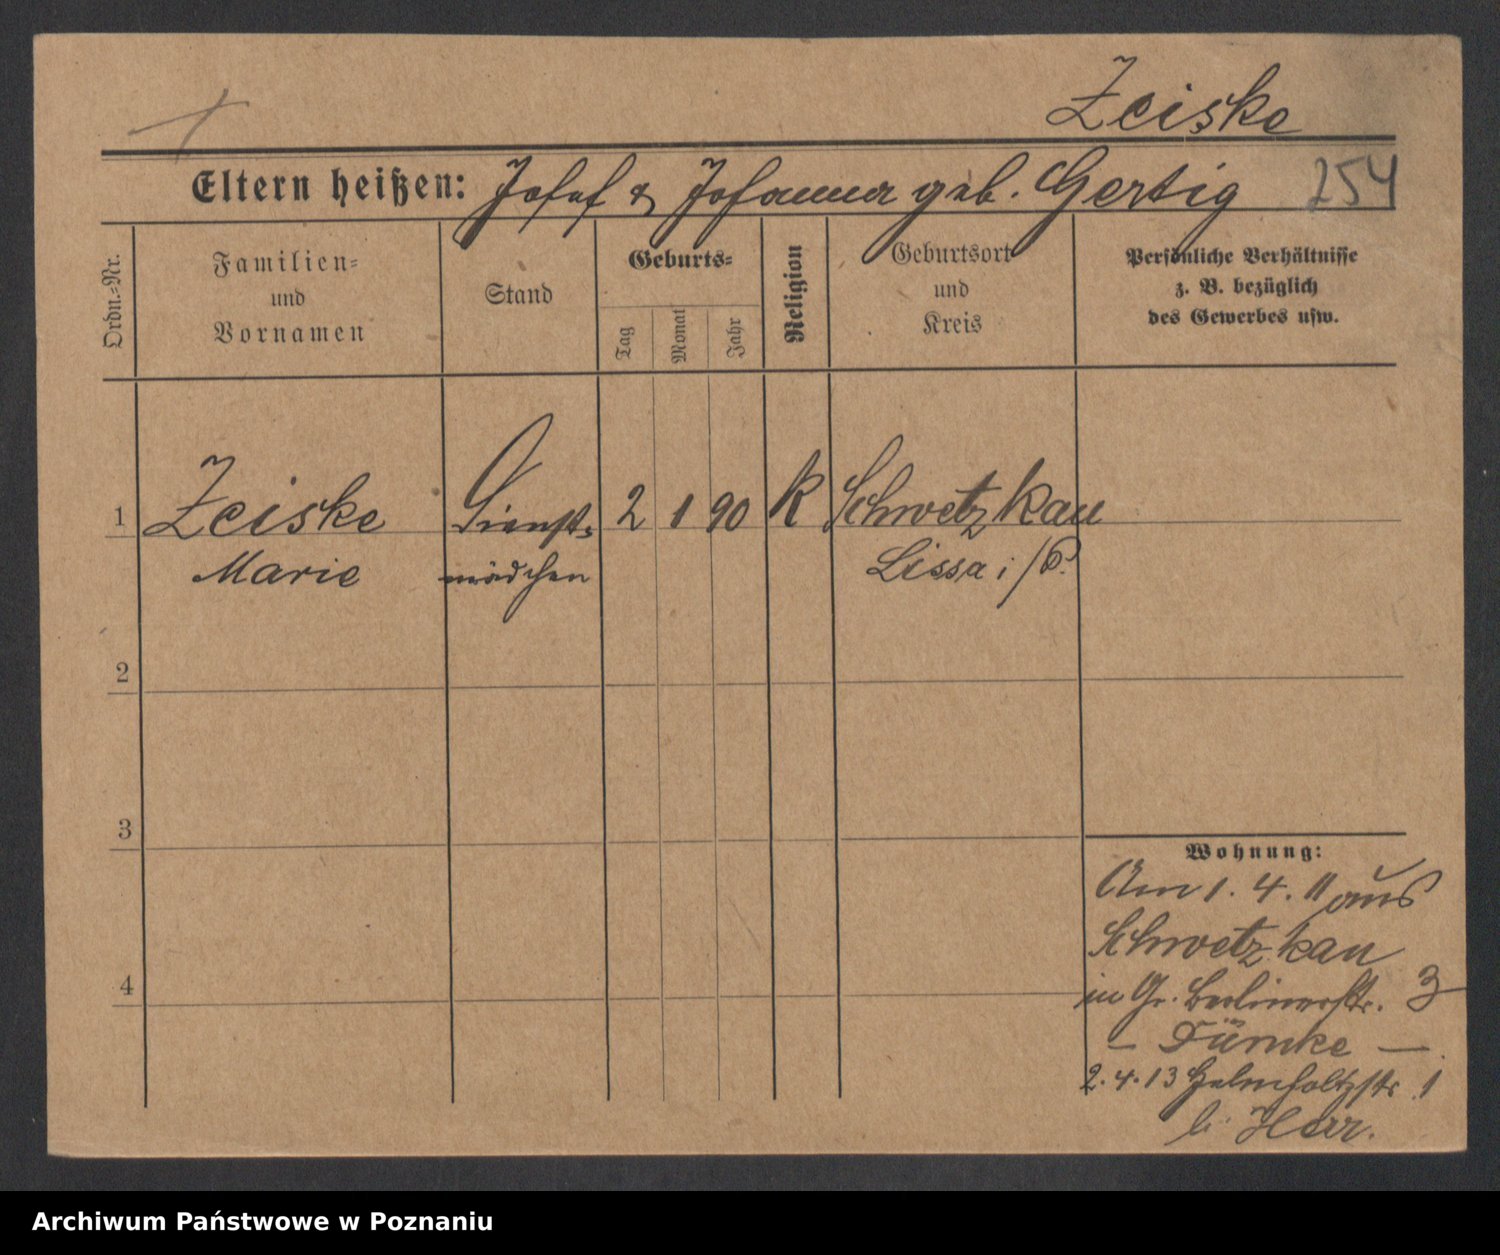 Zeiske
Eltern heißen: Josef & Johanna geb. Gertig 254
Ordn.=Nr.
Familien=
und
Vornamen
Stand
Geburts=
Tag
Monat
Jahr
Religion
Geburtsort
und
Kreis
Persönliche Verhältnisse
z. B. bezüglich
des Gewerbes usw.
1 Zeiske Dienst= 2 1 90 K Schwetzkau
Marie mädchen Lissa i/P.
2
3
4
Wohnung:
Am 1. 4. 11 aus
Schwetzkau
in Gr. Berlinerstr. 3
— Dümke —
2. 4. 13 Helmholtzstr. 1
b.
Archiwum Państwowe w Poznaniu